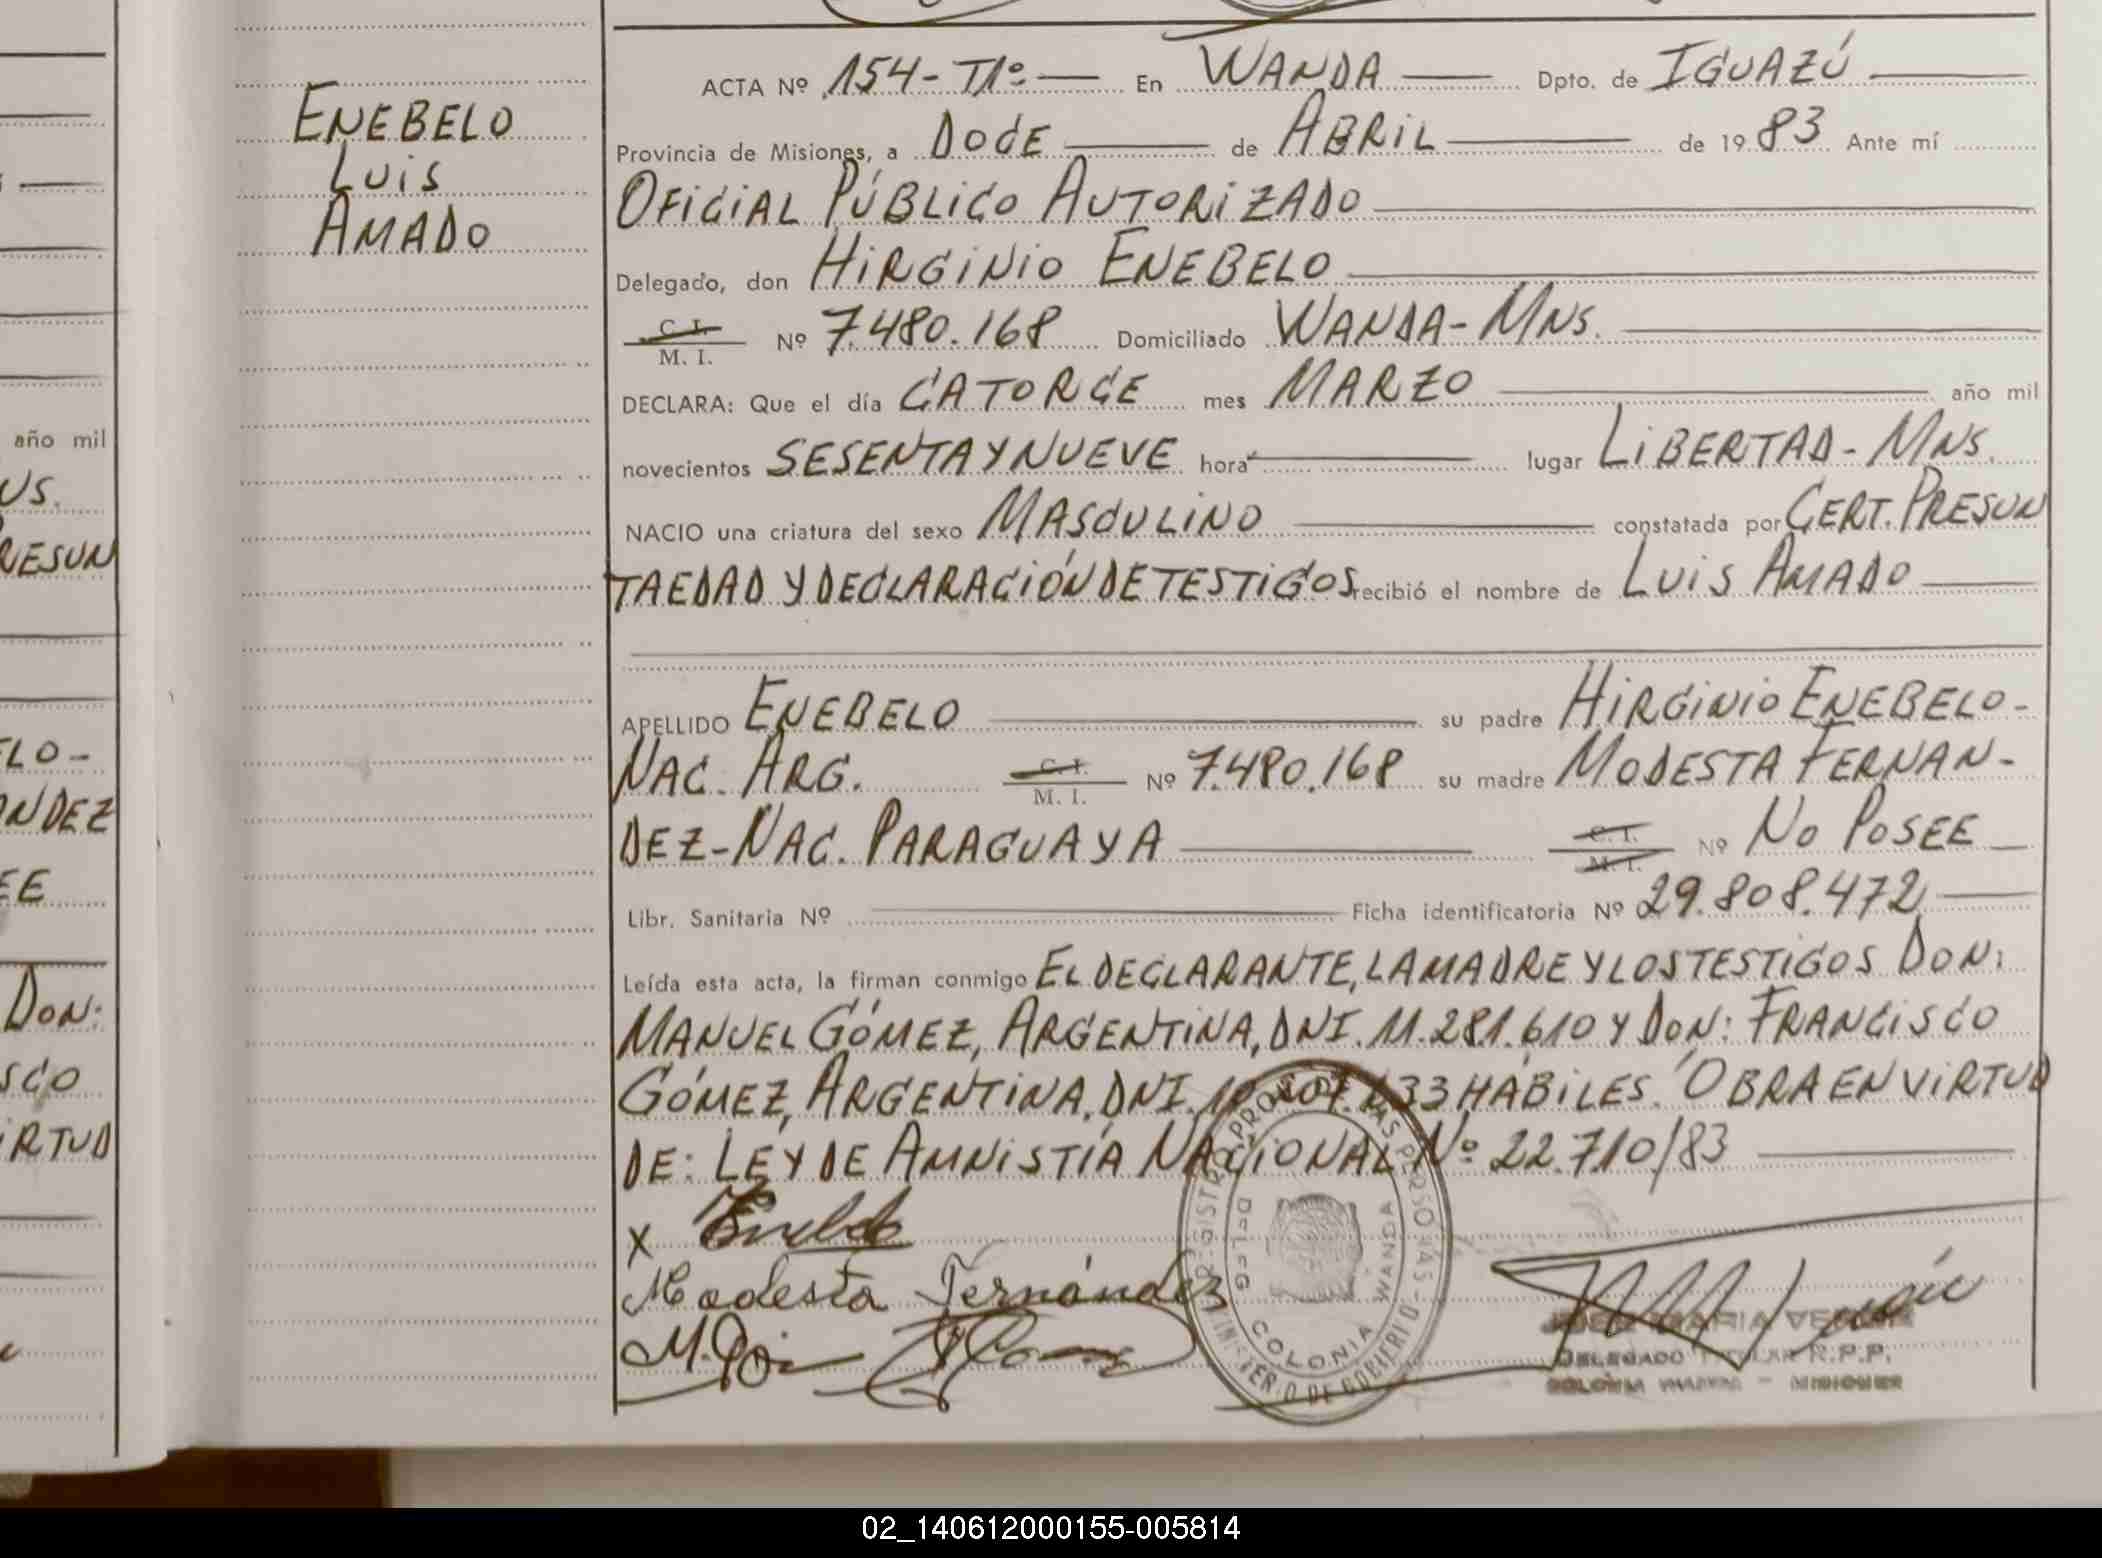 ENEBELO
LUIS
AMADO
ACTA Nº 154-Tº1º- En WANDA Dpto. de IGUAZÚ
Provincia de Misiones, a DOCE de ABRIL de 1983 Ante mí
OFICIAL PÚBLICO AUTORIZADO
Delegado, don HIRGINIO ENEBELO
C. I. M. I. Nº 7.480.168 Domiciliado WANDA-MNS.
DECLARA: Que el día CATORCE mes MARZO año mil
novecientos SESENTA Y NUEVE hora lugar LIBERTAD-MNS.
NACIO una criatura del sexo MASCULINO constatada por CERT. PRESUN
TA EDAD Y DECLARACIÓN DE TESTIGOS recibió el nombre de LUIS AMADO
APELLIDO ENEBELO su padre HIRGINIO ENEBELO-
NAC. ARG. C. I. M. I. Nº 7.480.168 su madre MODESTA FERNAN-
DEZ-NAC. PARAGUAYA C. I. M. I. Nº NO POSEE
Libr. Sanitaria Nº Ficha identificatoria Nº 29.808.472
Leída esta acta, la firman conmigo EL DECLARANTE, LA MADRE Y LOS TESTIGOS DON:
MANUEL GÓMEZ, ARGENTINA, DNI. 11.281.610 Y DON: FRANCISCO
GÓMEZ, ARGENTINA, DNI. HÁBILES. OBRA EN VIRTUD
DE: LEY DE AMNISTÍA NACIONAL Nº 22.710/83
X
Modesta Fernández
DELEGADO TITULAR R.P.P.
COLONIA WANDA - MISIONES
COLONIA WANDA
MINISTERIO DE GOBIERNO
año mil
US.
RESUN
ELO-
ANDEZ
EE
DON:
SCO
IRTUD
02_140612000155-005814